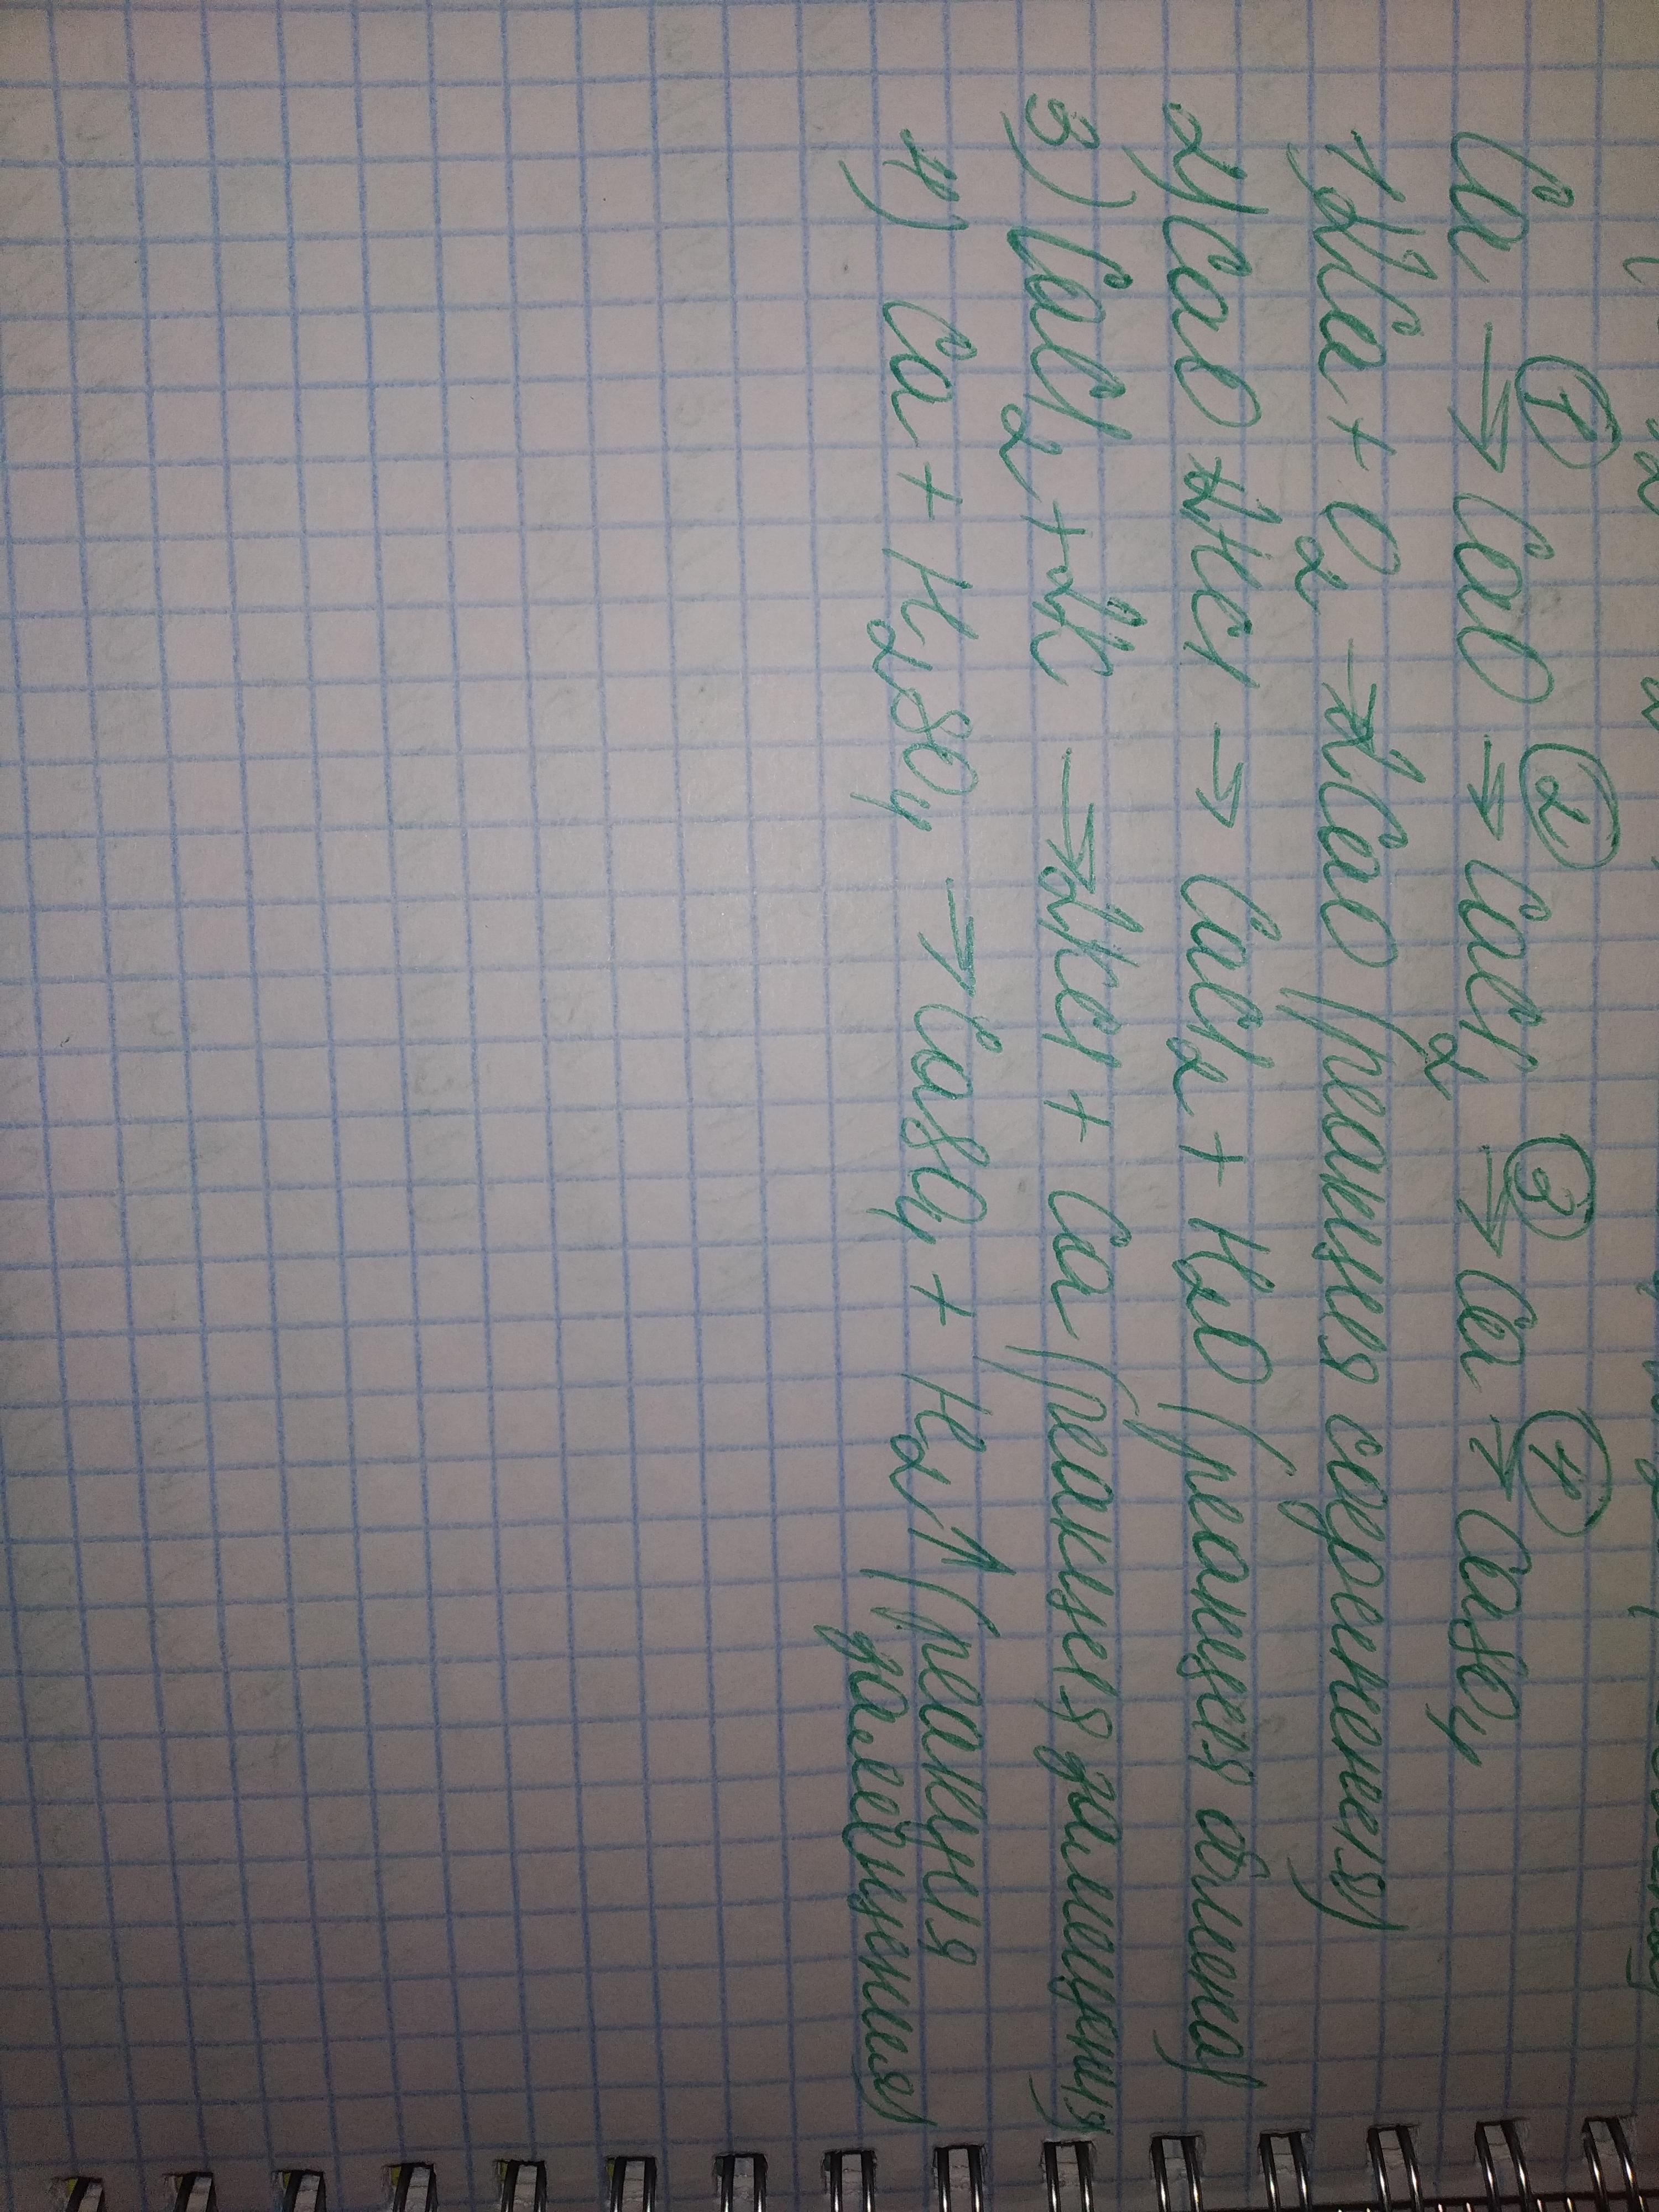 ① ② ③ ④
Ca → CaO → CaCl2 → Ca → CaSO4
1) 2Ca + O2 → 2CaO (реакция соединения)
2) CaO + 2HCl → CaCl2 + H2O (реакция обмена)
3) CaCl2 + 2K → 2KCl + Ca (реакция замещения
4) Ca + H2SO4 → CaSO4 + H2↑ (реакция
замещения)